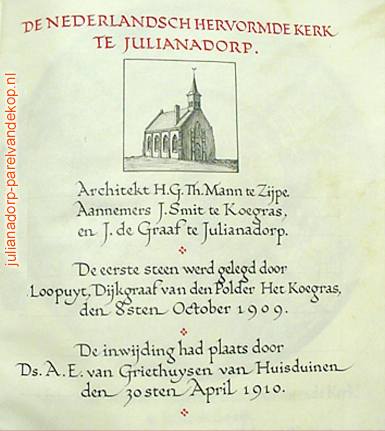 DE NEDERLANDSCH HERVORMDE KERK
TE JULIANADORP.
Architekt H.G.Th. Mann te Zijpe.
Aannemers J. Smit te Koegras,
en J. de Graaf te Julianadorp.
De eerste steen werd gelegd door
Loopuyt, Dijkgraaf van den Polder Het Koegras,
den 8sten October 1909.
De inwijding had plaats door
Ds. A.E. van Griethuysen van Huisduinen
den 30sten April 1910.
julianadorp-parelvandekop.nl